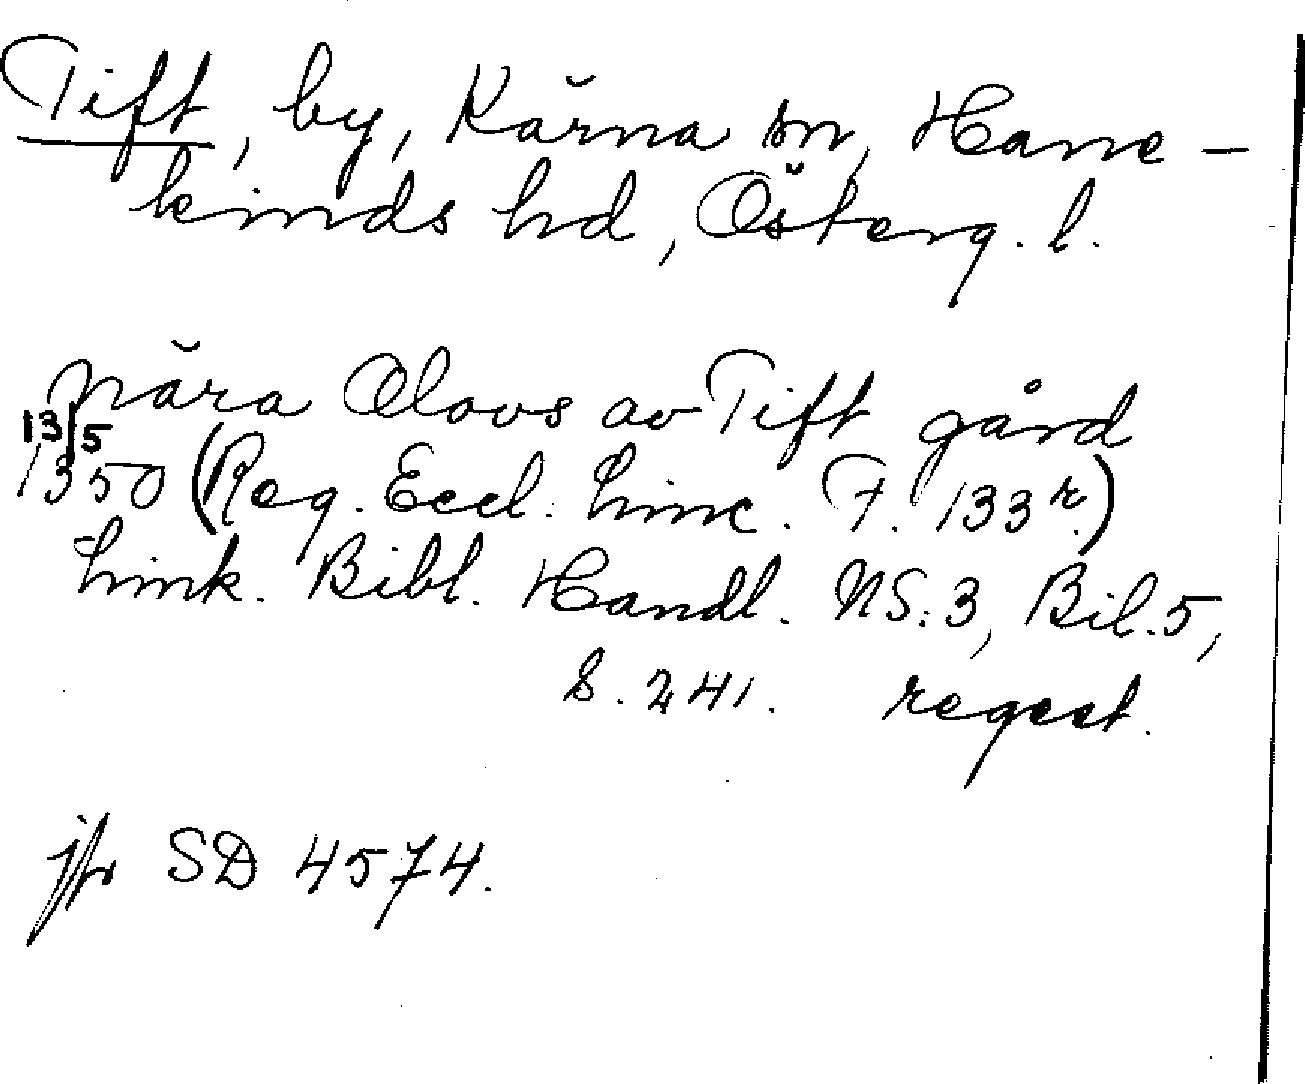 Tift, by, Kärna sn, Hane-
kinds hd, Österg. l.
nära Olovs av Tift gård
13/5
1350 (Reg. Eccl. Linc. F. 133 r.)
Link. Bibl. Handl. NS: 3, Bil. 5,
s. 241. regest.
jfr SD 4574.